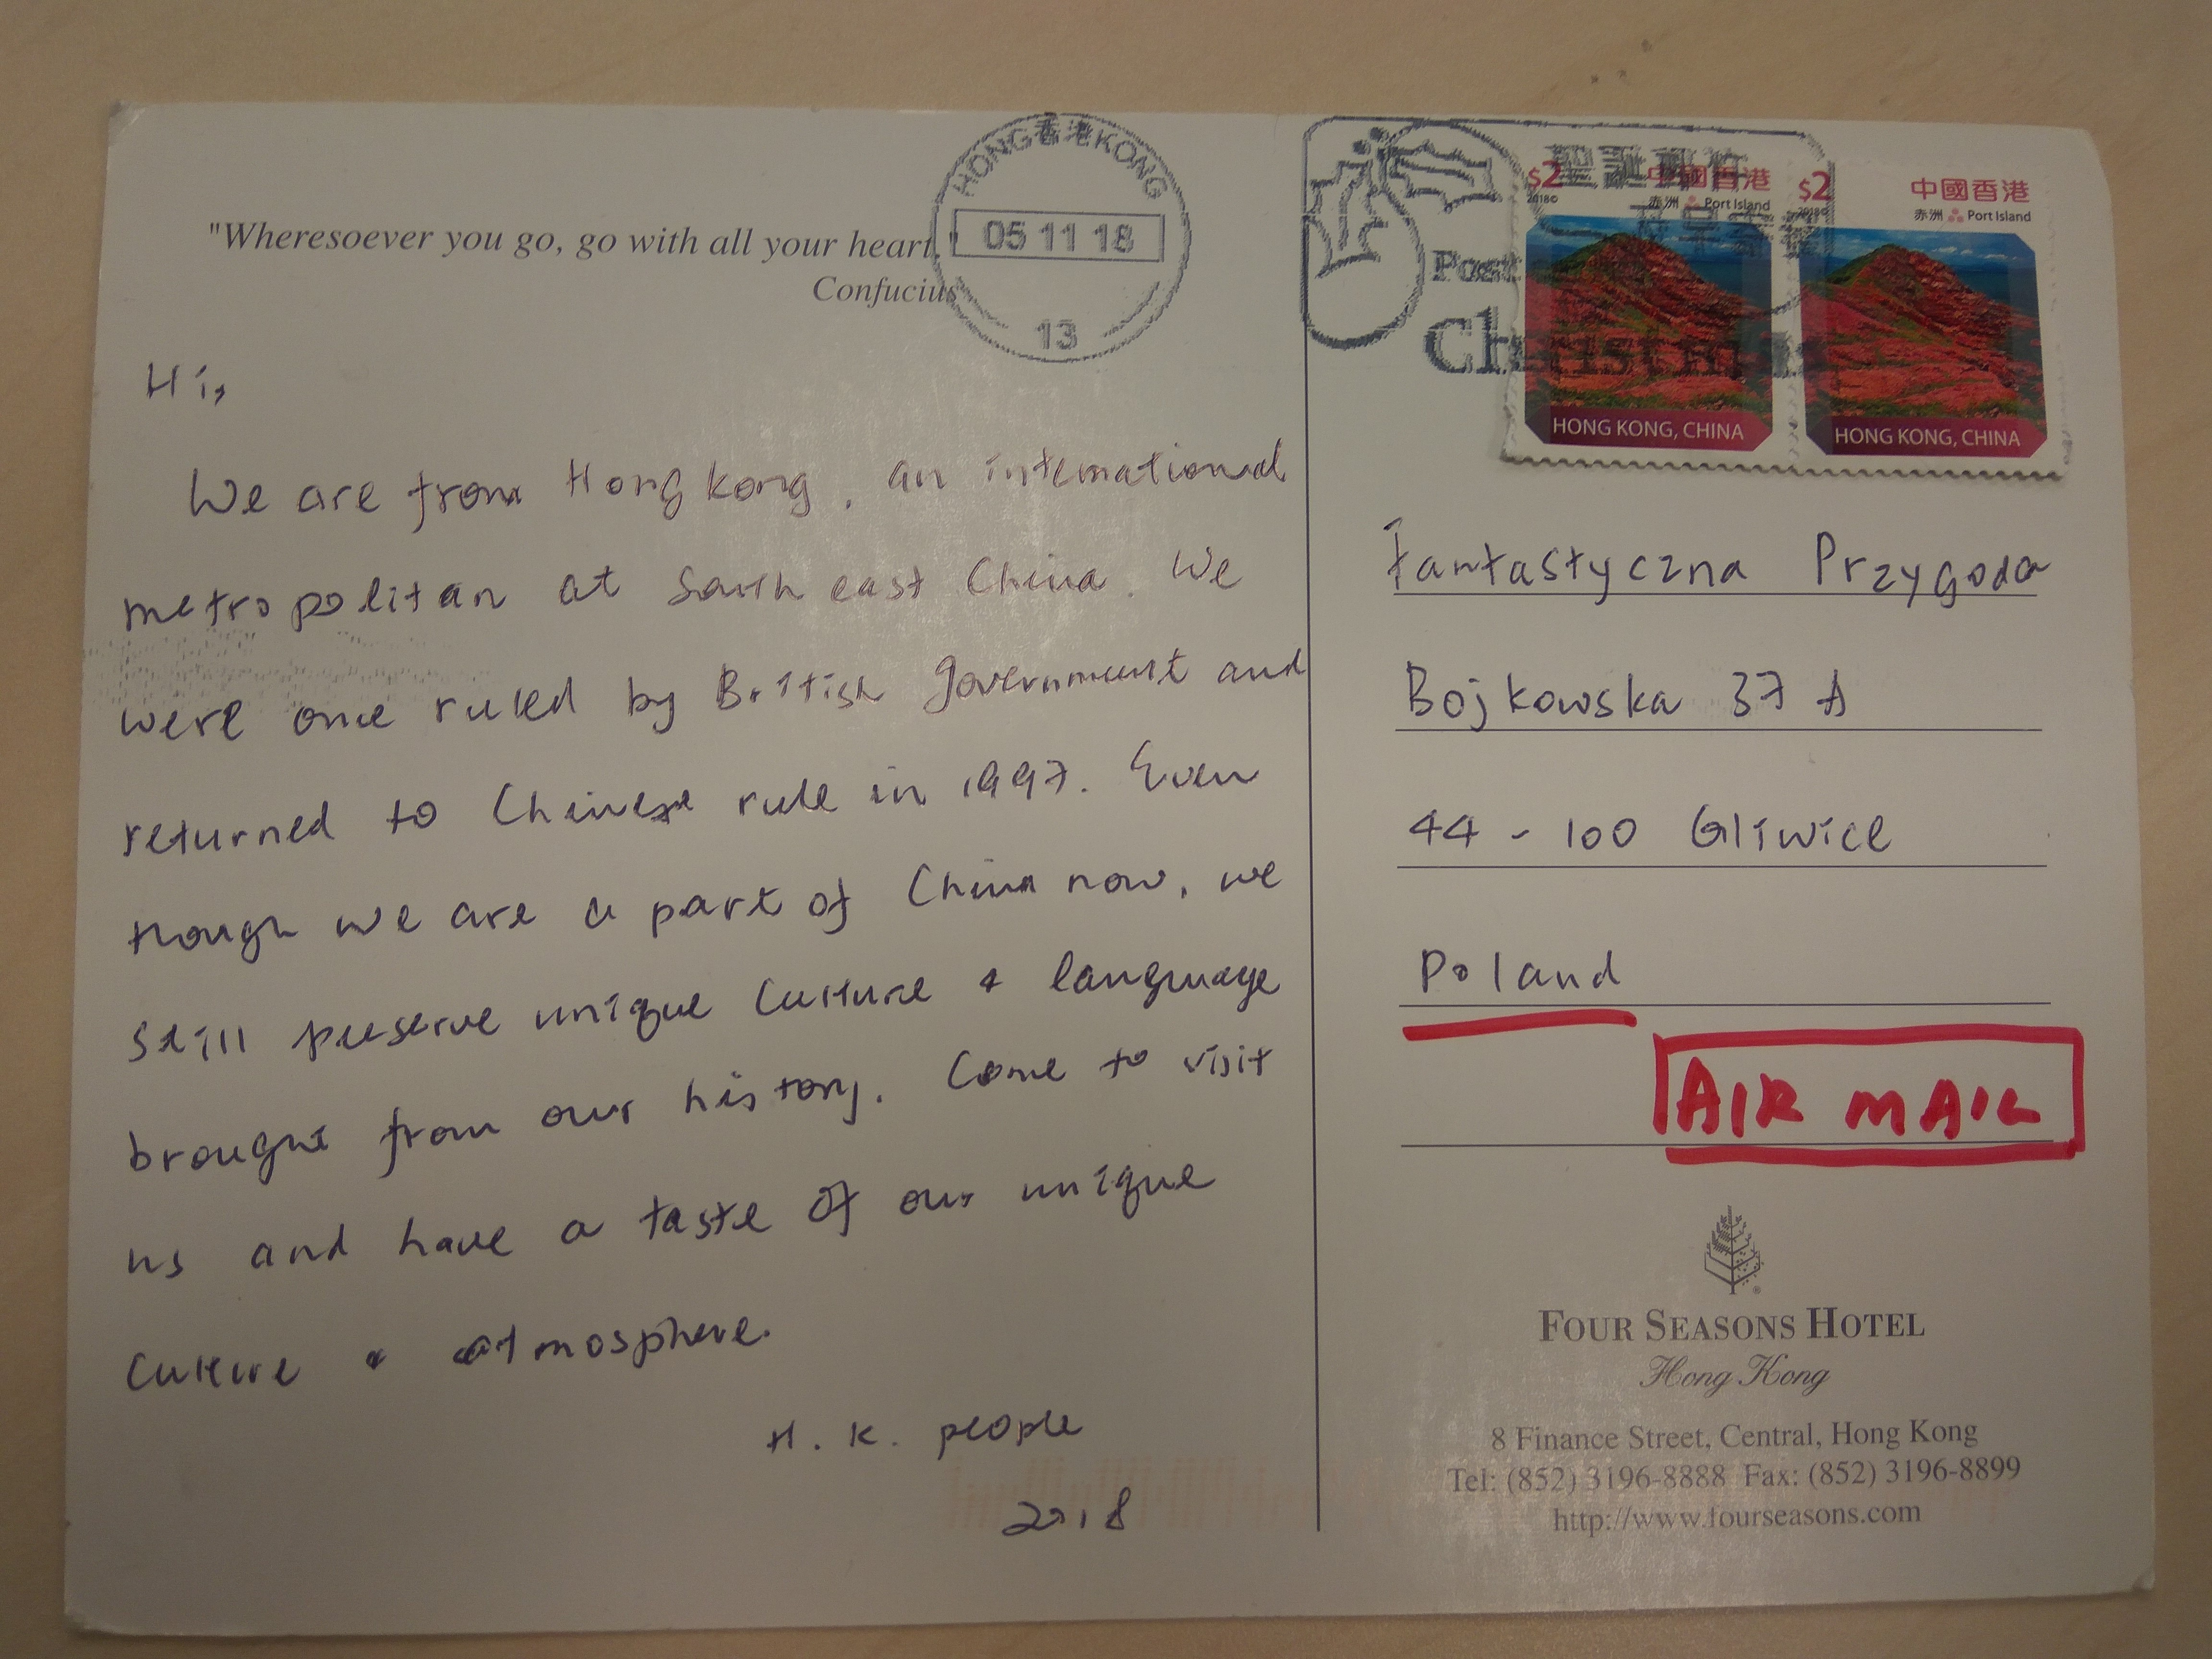 "Wheresoever you go, go with all your heart."
Confucius
HONG 香港 KONG
05 11 18
13
Hi,
We are from Hong Kong, an international
metropolitan at South east China. We
were once ruled by British government and
returned to Chinese rule in 1997. Even
though we are a part of China now, we
still preserve unique culture & language
brought from our history. Come to visit
us and have a taste of our unique
culture & atmosphere.
H. K. people
2018
Post
Christm
$2 中國香港
2018© 赤洲 Port Island
HONG KONG, CHINA
$2 中國香港
2018© 赤洲 Port Island
HONG KONG, CHINA
Fantastyczna Przygoda
Bojkowska 37 A
44 - 100 Gliwice
Poland
AIR MAIL
FOUR SEASONS HOTEL
Hong Kong
8 Finance Street, Central, Hong Kong
Tel: (852) 3196-8888 Fax: (852) 3196-8899
http://www.fourseasons.com